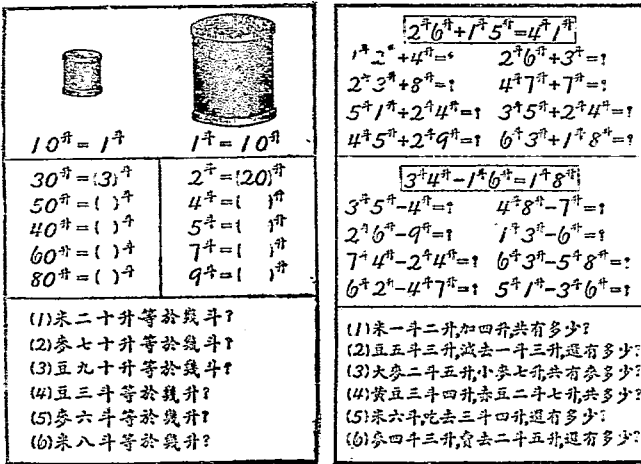 10升=1斗
1斗=10升
30升=(3)斗
50升=( )斗
40升=( )斗
60升=( )斗
80升=( )斗
2斗=(20)升
4斗=( )升
5斗=( )升
7斗=( )升
9斗=( )升
(1)米二十升等於幾斗?
(2)麥七十升等於幾斗?
(3)豆九十升等於幾斗?
(4)豆三斗等於幾升?
(5)麥六斗等於幾升?
(6)米八斗等於幾升?
2斗6升+1斗5升=4斗1升
1斗2升+4升=? 2斗6升+3升=?
2斗3升+8升=? 4斗7升+7升=?
5斗1升+2斗4升=? 3斗5升+2斗4升=?
4斗5升+2斗9升=? 6斗3升+1斗8升=?
3斗4升-1斗6升=1斗8升
3斗5升-4升=? 4斗8升-7升=?
2斗6升-9升=? 1斗3升-6升=?
7斗4升-2斗4升=? 6斗3升-5斗8升=?
6斗2升-4斗7升=? 5斗1升-3斗6升=?
(1)米一斗二升,加四升,共有多少?
(2)豆五斗三升,減去一斗三升,還有多少?
(3)大麥二斗五升,小麥二斗七升,共有麥多少?
(4)黄豆三斗四升,赤豆二斗七升,共有多少?
(5)米六斗,吃去三斗四升,還有多少?
(6)麥四斗三升,賣去二斗五升,還有多少?